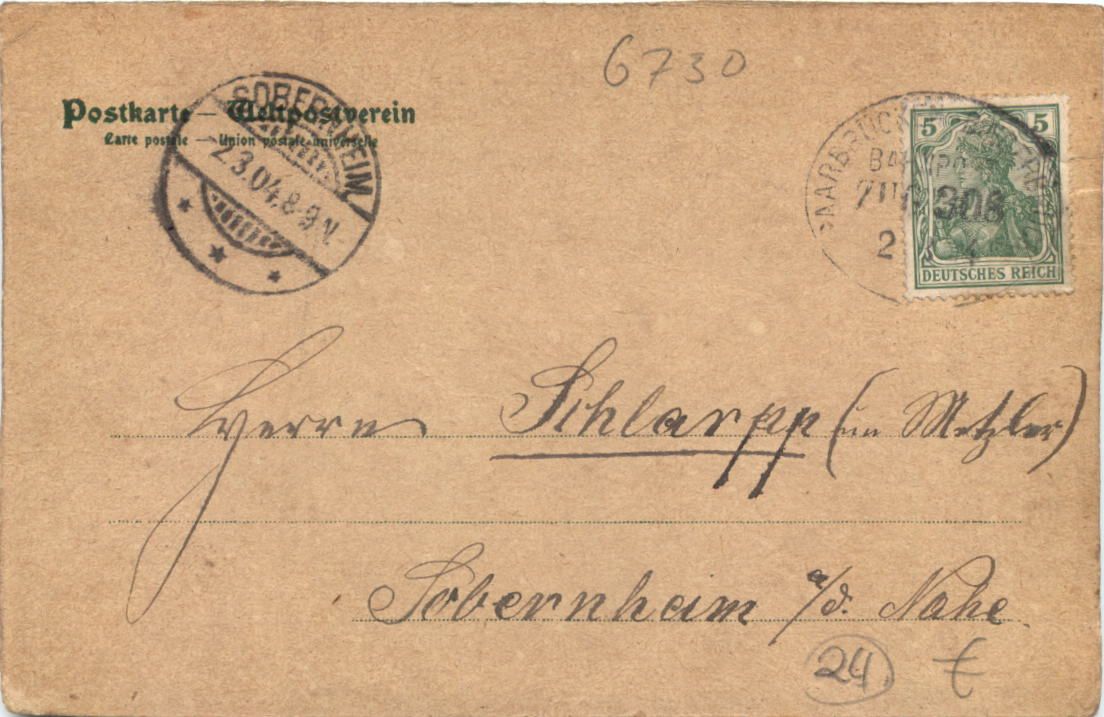 6730
Postkarte — Weltpostverein
Carte postale — Union postale universelle
SOBERNHEIM
2.3.04.8-9 N.
SAARBRÜCKEN
BAHNPOST
ZUG 308
2
5 5
DEUTSCHES REICH
Herrn Schlarpp (im Metzler)
Sobernheim a/d. Nahe
24 €